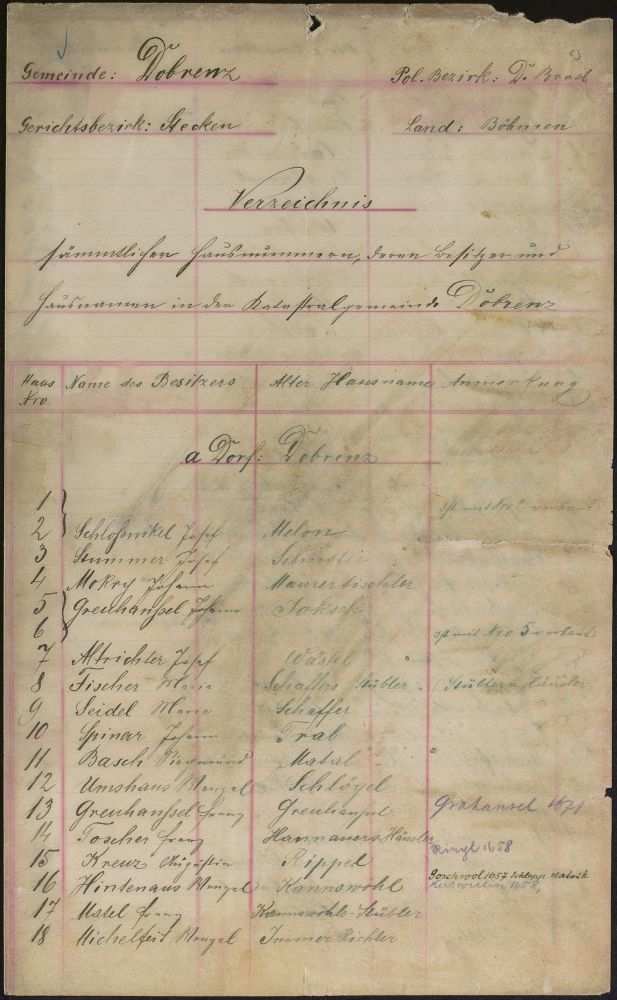 Gemeinde: Dobrenz Pol. Bezirk: D. Brod
Gerichtsbezirk: Stecken Land: Böhmen
Verzeichnis
sämmtlicher Hausnummern, deren Besitzer und
Hausnamen in der Katastralgemeinde Dobrenz
Haus Nro. Name des Besitzers Alter Hausname Anmerkung
a Dorf: Dobrenz
1 ist mit Nro 2 verbaut
2 Schloßnikel Josef Melon
3 Stummer Josef Schuster
4 Mokry Johann Maurertischler
5 Greuhansel Johann
6 ist mit Nro 5 verbaut
7 Altrichter Josef Wastel
8 Fischer Maria Schaffers Stübler
9 Seidel Maria Schaffer
10 Spinar Johann Trab
11 Basch Siegmund Matzl
12 Umshaus Wenzel Schlögel
13 Greuhansel Franz Greuhansel Grohansel 1671
14 Toscher Franz Hannauers Häusler Ringl 1658
15 Kreuz Augustin Rippel
16 Hintenaus Wenzel Kannswohl Goschwol 1657 Schlapp. Matrik
1658,
17 Matel Franz Kannswohls-Stübler
18 Michelfeit Wenzel Immer Richter